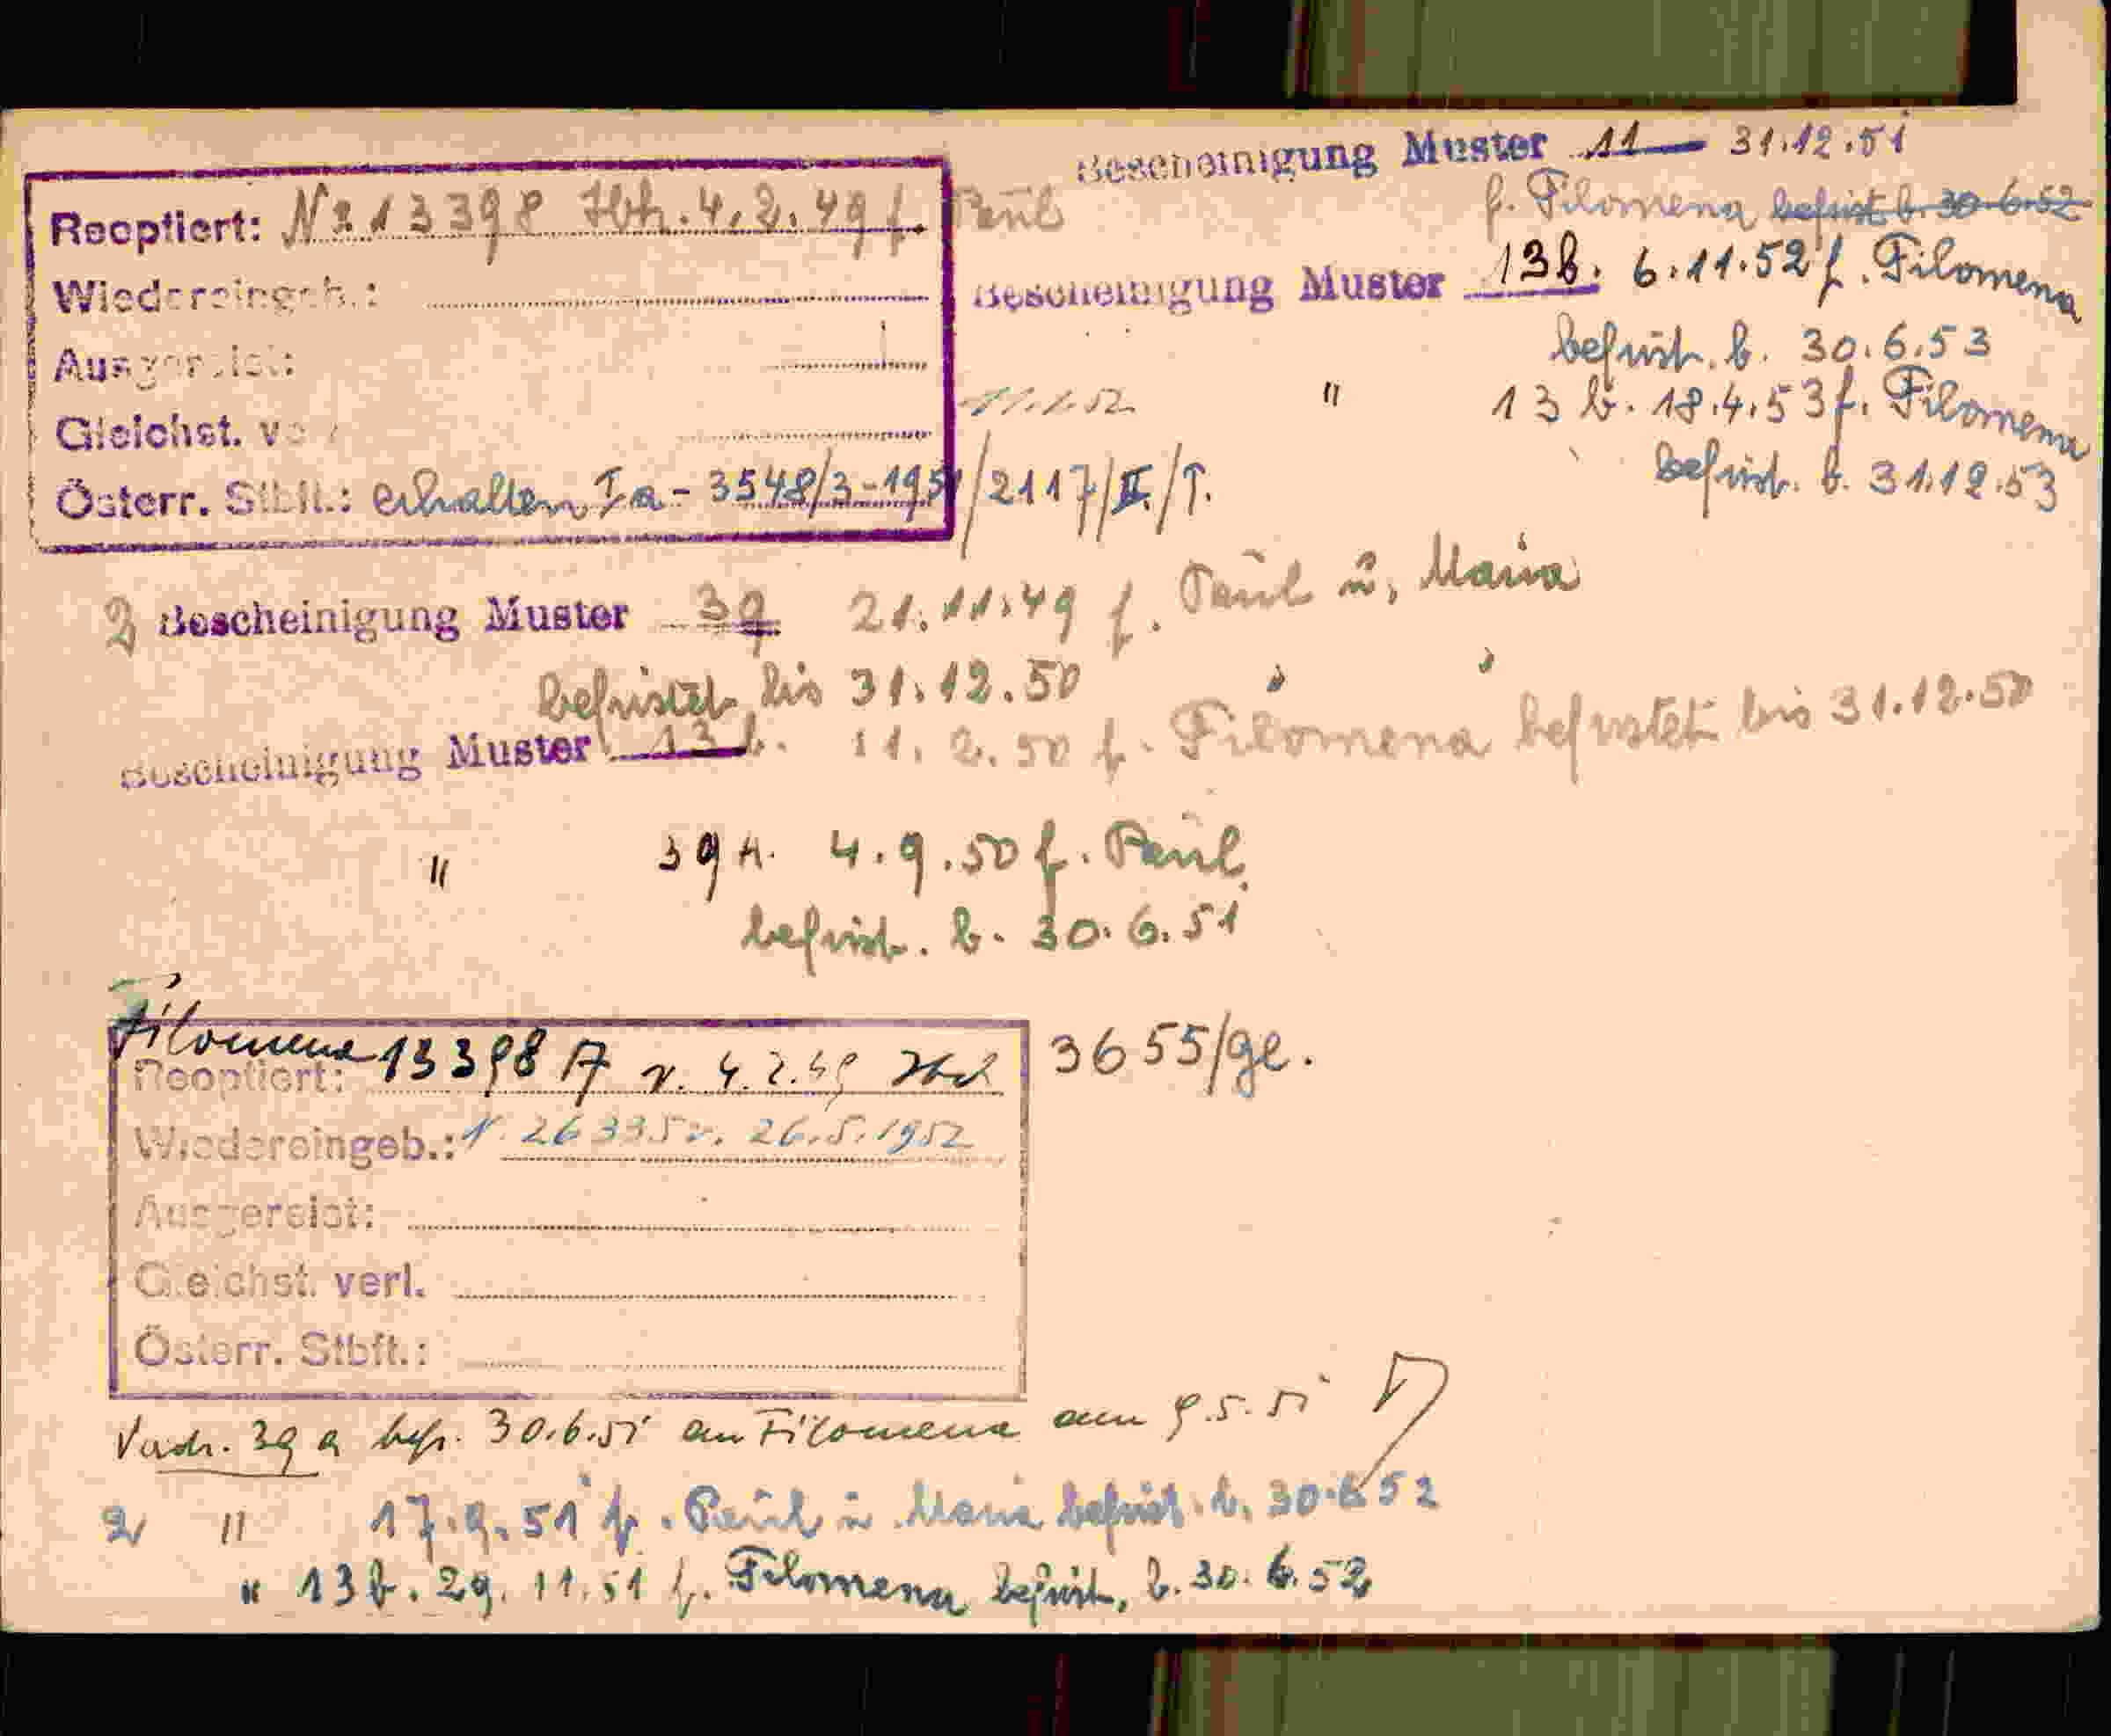 Reoptiert: No 13398 Ibk. 4.2.49 f. Paul
Wiedereingeb.:
Ausgereist:
Gleichst. ve
11.1.52
Österr. Stbft.: erhalten Ia - 3548/3-1951/2117/II/T.
Bescheinigung Muster 11 31.12.51
f. Filomena befrist. b. 30.6.52
Bescheinigung Muster 13b. 6.11.52 f. Filomena
befrist. b. 30.6.53
" 13 b. 18.4.53 f. Filomena
befrist. b. 31.12.53
2 Bescheinigung Muster 39 21.11.49 f. Paul u. Maria
befristet bis 31.12.50 " "
Bescheinigung Muster 13 b. 11.2.50 f. Filomena befristet bis 31.12.50
" 39 A. 4.9.50 f. Paul
befrist. b. 30.6.51
Filomena
Reoptiert: 13398 A v. 4.2.49 Ibk 3655/ge.
Wiedereingeb.: N. 26335 v. 26.5.1952
Ausgereist:
Gleichst. verl.
Österr. Stbft.:
39 a bfr. 30.6.51 an Filomena am 9.5.51
2 " 17.9.51 f. Paul u. Maria befrist. b. 30.6.52
" 13 b. 29.11.51 f. Filomena befrist. b. 30.6.52